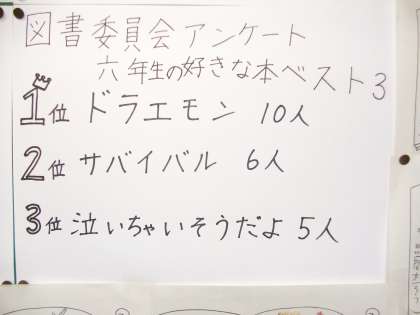 図書委員会アンケート
六年生の好きな本ベスト3
1位 ドラエモン 10人
2位 サバイバル 6人
3位 泣いちゃいそうだよ 5人